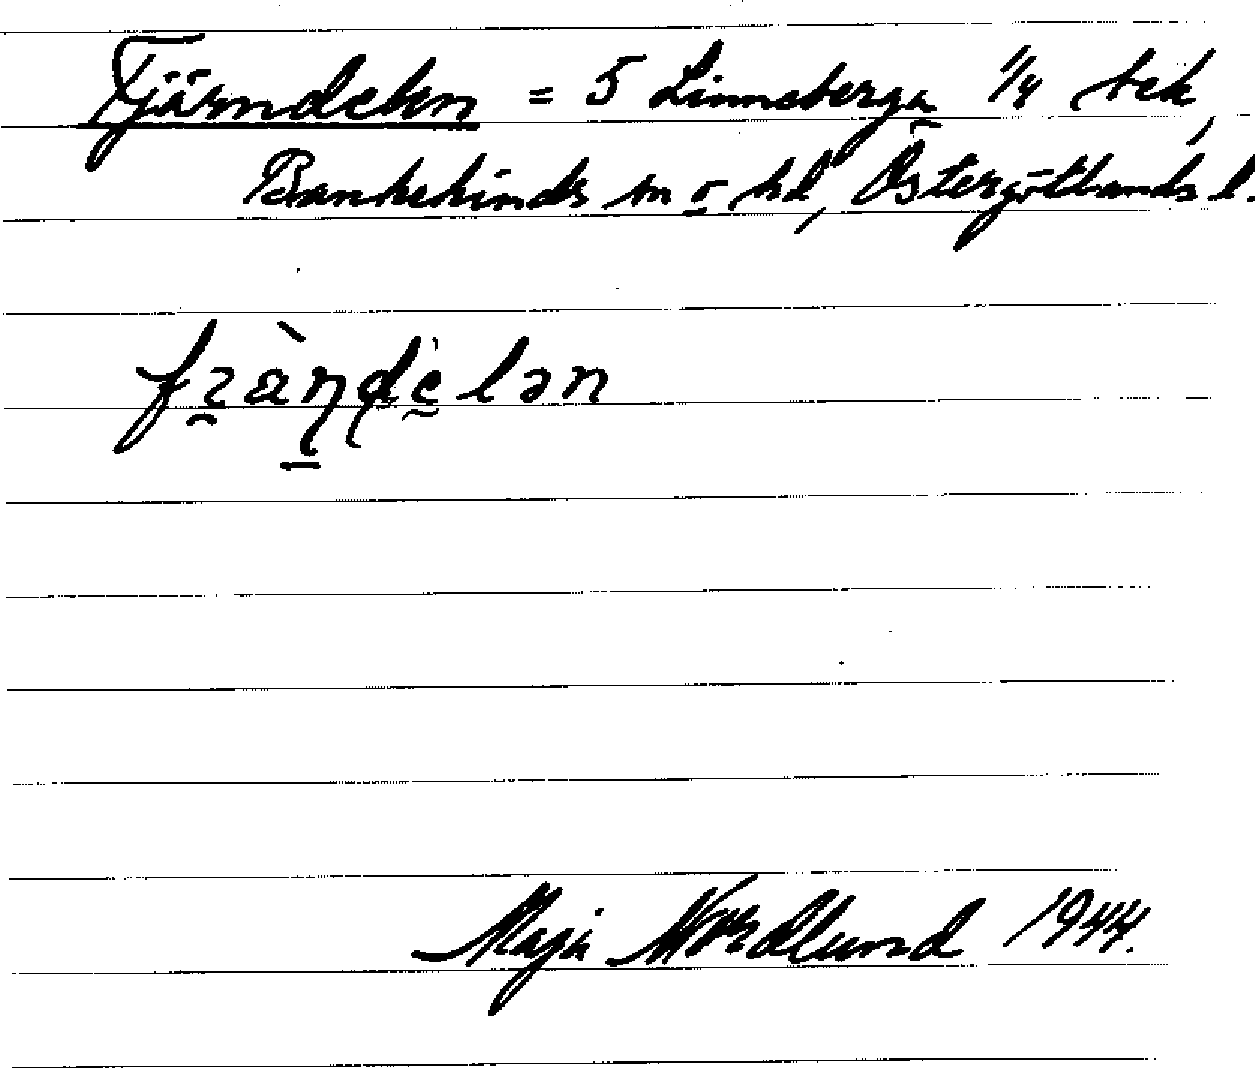 Fjärndelen = 5 Linneberga 1/4
Bankekinds sn o hd, Östergötlands l.
fràn̠delən
Maja Nordlund 1944.